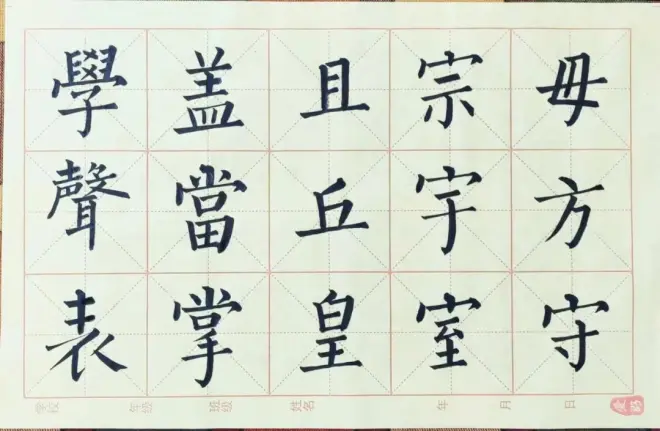 毋方守
宗宇室
且丘皇
盖當掌
學聲表
学校 年级 班级 姓名 年 月 日